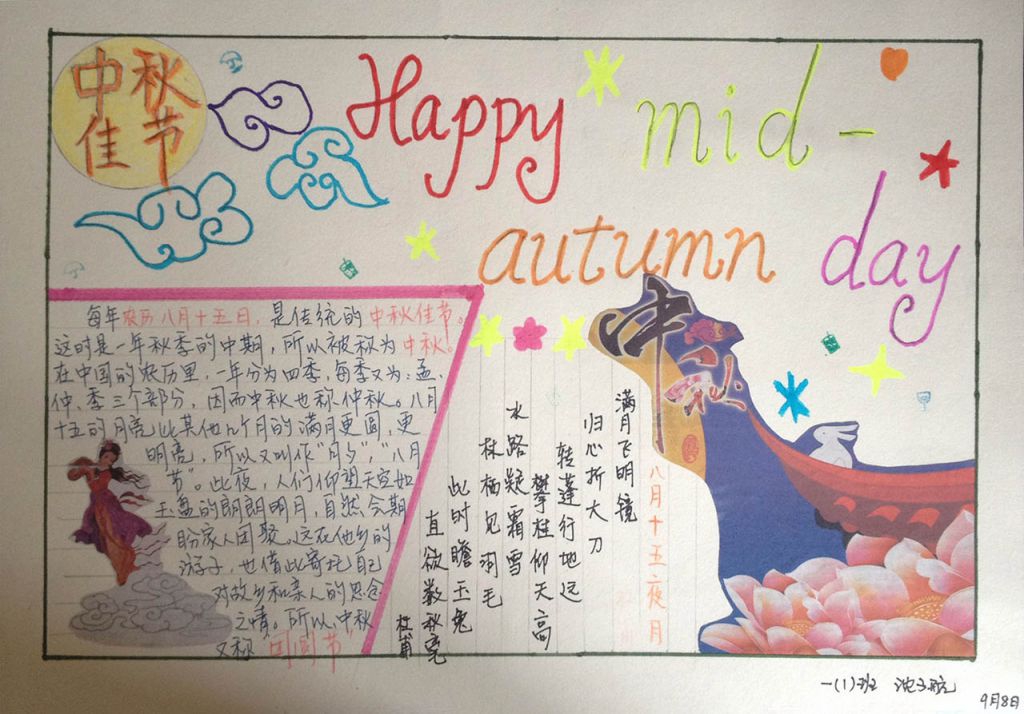 中秋
佳节
Happy mid-
autumn day
每年农历八月十五日，是传统的中秋佳节。
这时是一年秋季的中期，所以被称为中秋。
在中国的农历里，一年分为四季，每季又为：孟、
仲、季三个部分，因而中秋也称仲秋。八月
十五的月亮比其他几个月的满月更圆，更
明亮，所以又叫作"月夕"，"八月
节"。此夜，人们仰望天空如
玉盘的朗朗明月，自然会期
盼家人团聚。远在他乡的
游子，也借此寄托自己
对故乡和亲人的思念
之情。所以，中秋
又称"团圆节"
中秋
八月十五夜月
满月飞明镜
归心折大刀
转蓬行地远
攀桂仰天高
水路疑霜雪
林栖见羽毛
此时瞻玉兔
直欲数秋毫
杜甫
一(1)班 沈子航
9月8日